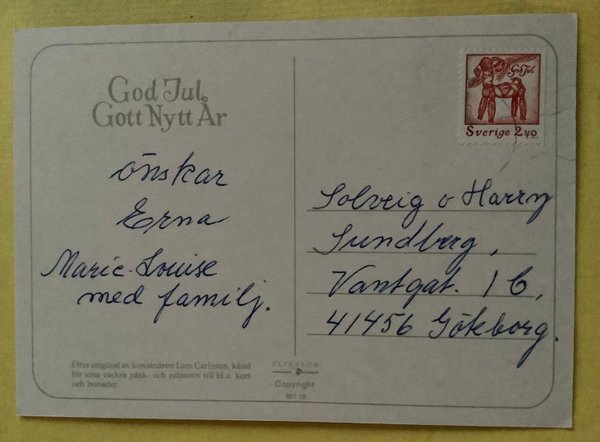 God Jul
Gott Nytt År
önskar
Erna
Marie-Louise
med familj.
Efter original av konstnären Lars Carlsson, känd
för sina vackra påsk- och julmotiv till bl.a. kort
och bonader.
ELIASSON
Copyright
God Jul
Sverige 2.40
Solveig o Harry
Sundberg,
Vantgat. 1 C,
41456 Göteborg.